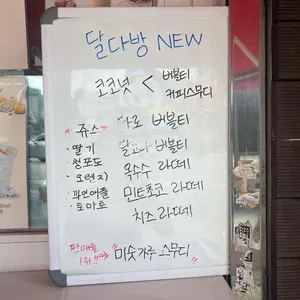 달다방 NEW
코코넛 < 버블티
커피스무디
*쥬스*
· 딸기
· 청포도
· 오렌지
· 파인애플
· 토마토
타로 버블티
달고나 버블티
옥수수 라떼
민트초코 라떼
치즈라떼
판매율
1위!!! → "미숫가루 스무디"